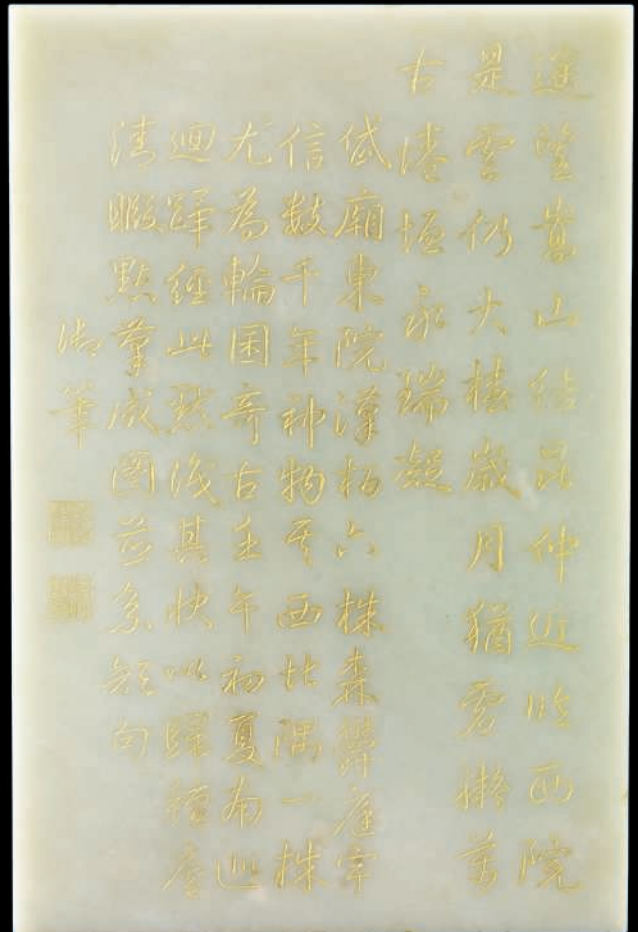 遥望嵩山結昆仲近臨西院
是雲仍大椿歲月猶虛擬萬
古垣永瑞凝
岱廟東院漢柏六株森鬱庭宇
信數千年神物其西北隅一株
尤為輪囷奇古壬午初夏南巡
迴蹕經此默識其狀以歸
清暇點筆成圖並系短句
御筆